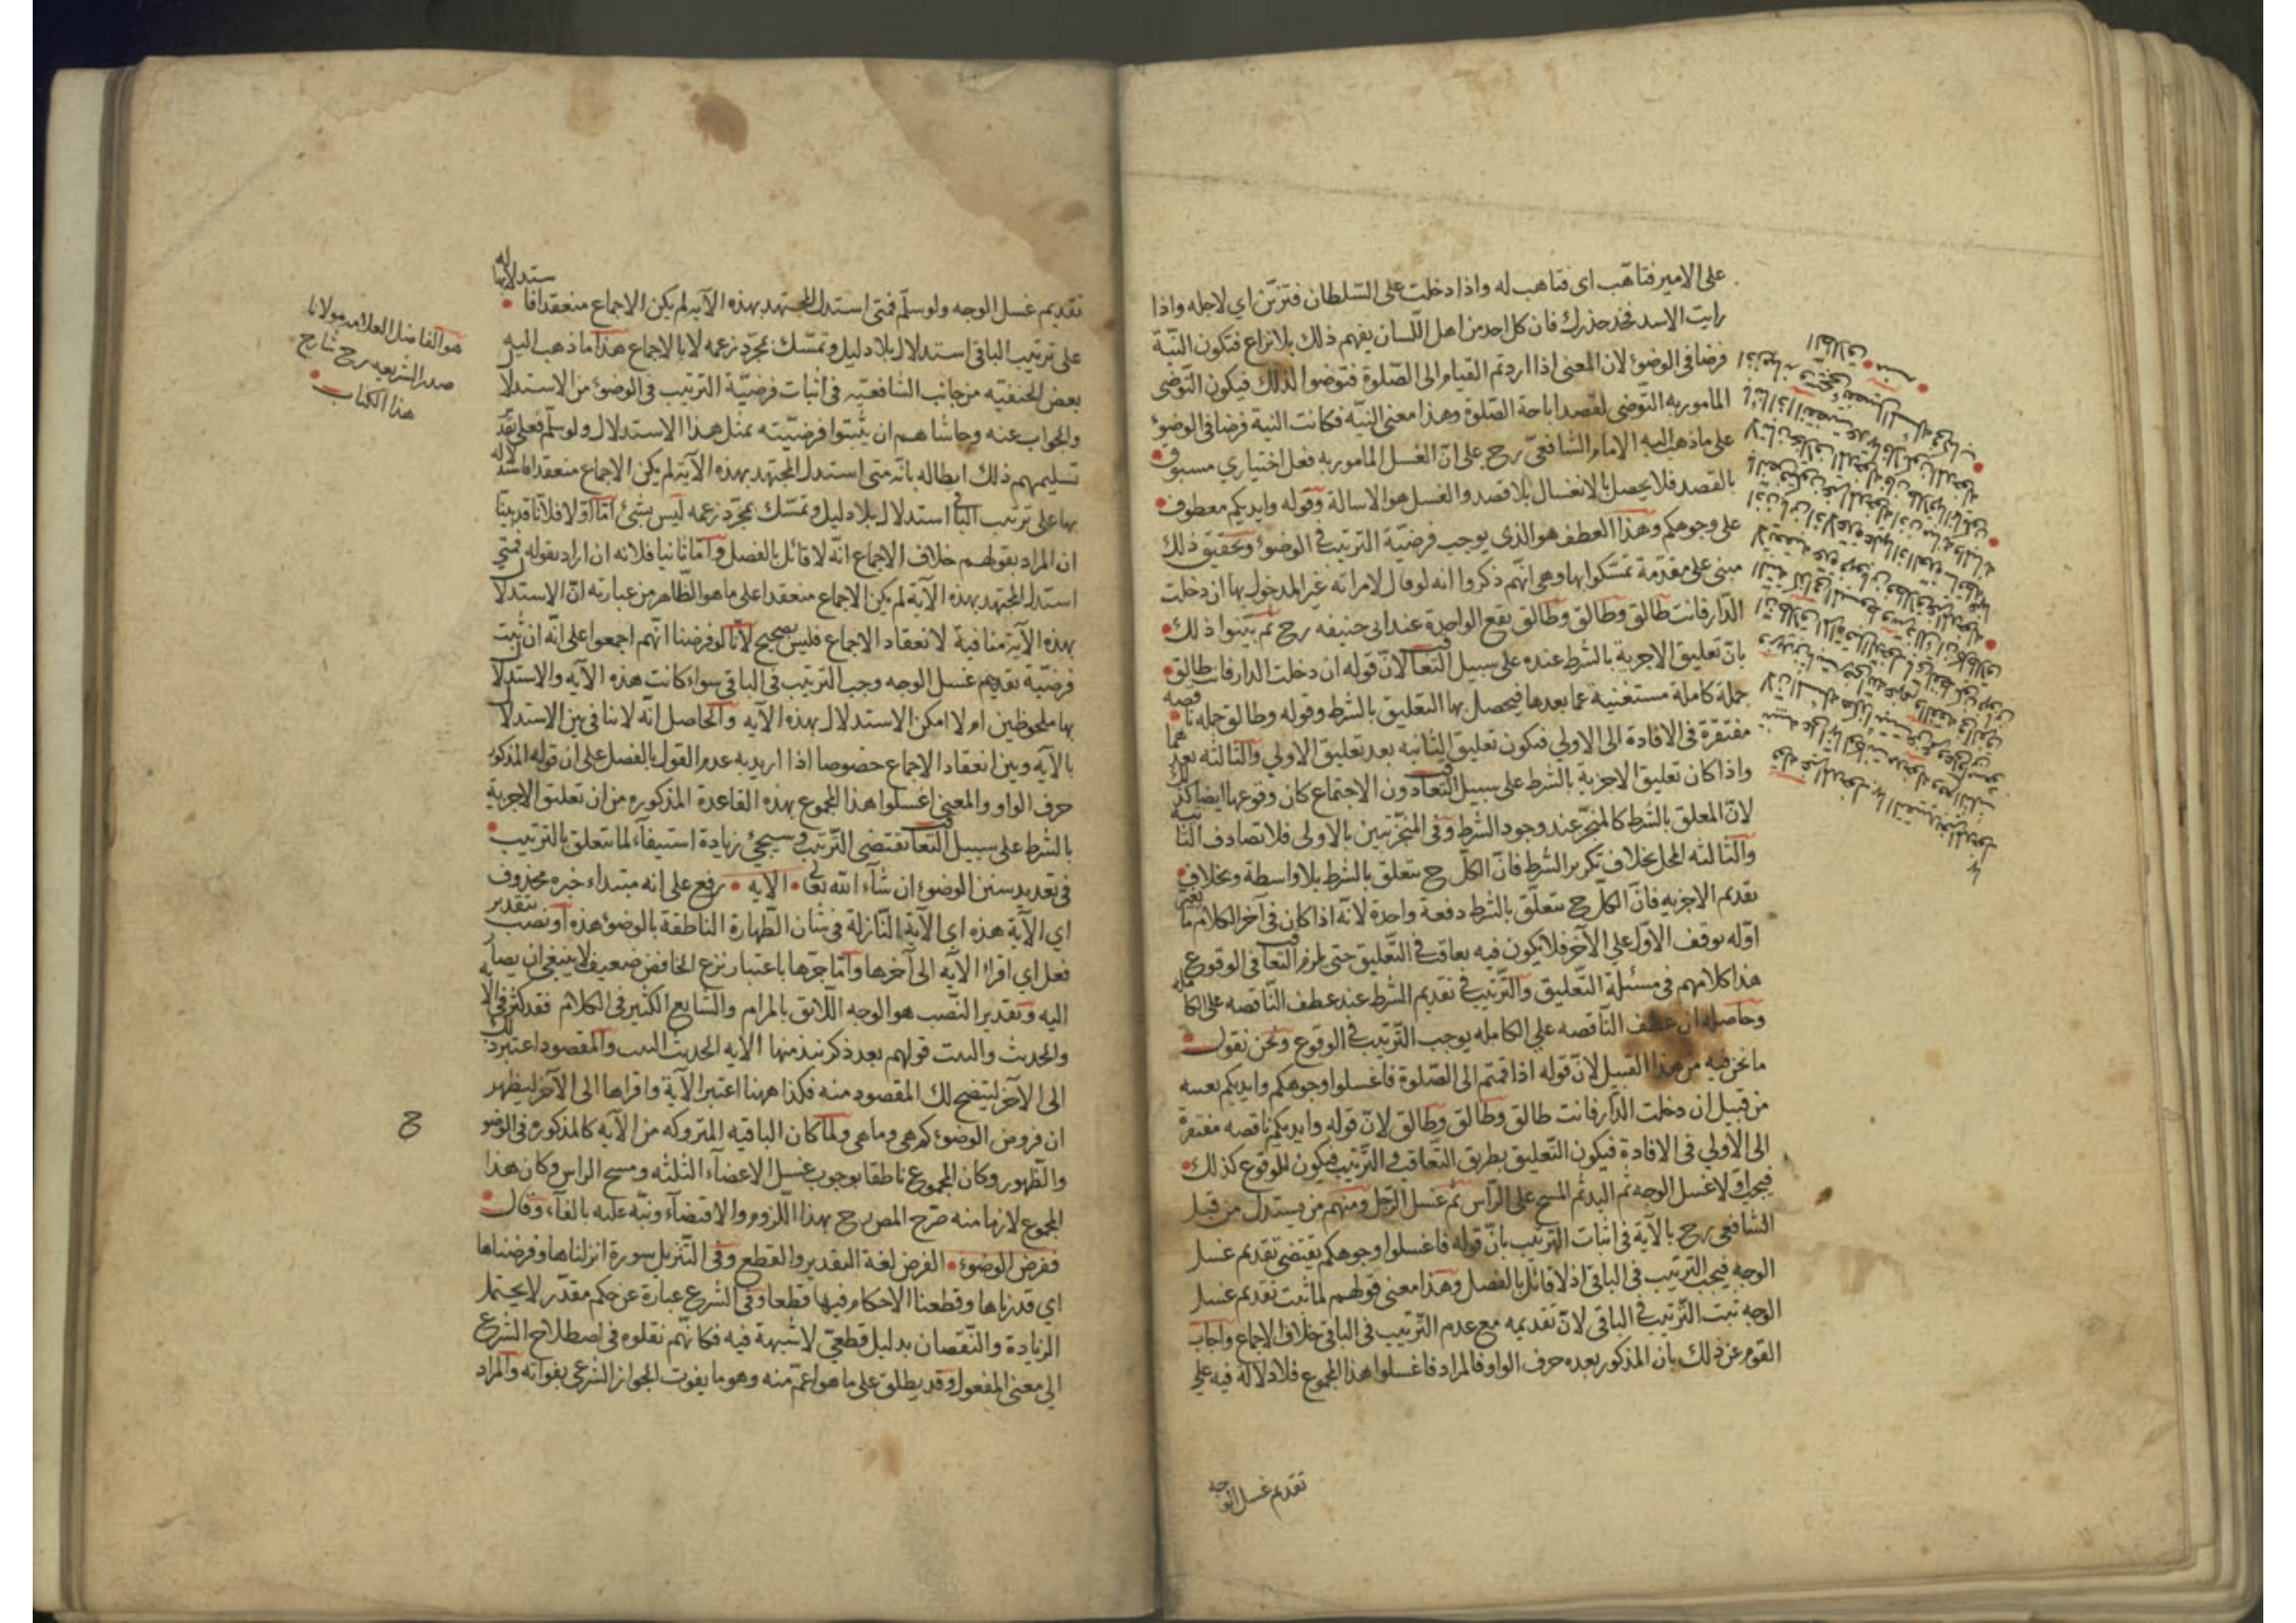 على الامير فتاهّب اى فتاهب له واذا دخلت على السّلطان فتزيّن اي لاجله واذا
رايت الاسد فخذ حذرك فان كل احد من اهل اللّسان يفهم ذلك بلا نزاع فتكون النّية
فرضا فى الوضوء لان المعنى اذا اردتم القيام الى الصّلوة فتوضوا لذلك فيكون التّوضى
المامور به التّوضى لقصد اباحة الصّلوة وهذا معنى النيّه فكانت النية فرضا فى الوضوء
على ماذهب اليه الامام الشّافعىّ رح على انّ الغسل المامور به فعل اختياري مسبوق
بالقصد فلا يحصل بالانغسال بلا قصد والغسل هو الاسالة وقوله وايديكم معطوف
على وجوهكم وهذا العطف هو الذى يوجب فرضيّة الترتيب فى الوضوء وتحقيق ذلك
مبنى على مقدّمة تمسّكوا بها وهى انّهم ذكروا انه لو قال لامراته غير المدخول بها ان دخلت
الدّار فانت طالق وطالق وطالق يقع الواحدة عند ابى حنيفه رح ثم بيّنوا ذلك
بانّ تعليق الاجزية بالشّرط عنده على سبيل التعاقب لانّ قوله ان دخلت الدار فانت طالق
جملة كاملة مستغنية عما بعدها فيحصل بها التعليق بالشّرط وقوله وطالق جمله ناقصه
مفتقرة فى الافادة الى الاولي فيكون تعليق الثانيه بعد تعليق الاولي والثالثه بعدهما
واذا كان تعليق الاجزية بالشّرط على سبيل التعاقب دون الاجتماع كان وقوعها ايضا كذلك
لانّ المعلق بالشّرط كالمنجّز عند وجود الشّرط وفى المنجّز تبين بالاولى فلا تصادف الثانية
والثّالثه المحل بخلاف تكرير الشّرط فانّ الكلّ ح يتعلق بالشّرط بلا واسطة وبخلاف
تقديم الاجزيه فانّ الكل ح يتعلّق بالشّرط دفعة واحدة لانّه اذا كان فى آخر الكلام ما يغير
اوّله يوقف الاوّل علي الآخر فلا يكون فيه تعاقب فى التّعليق حتى يلزم التعاقب فى الوقوع
هذا كلامهم فى مسئلة التّعليق والتّرتيب فى تقديم الشّرط عند عطف النّاقصه على الكامله
وحاصله ان عطف النّاقصه علي الكامله يوجب التّرتيب فى الوقوع ونحن نقول
ما نحن فيه من هذا القبيل لانّ قوله اذا قمتم الى الصّلوة فاغسلوا وجوهكم وايديكم بعينه
من قبيل ان دخلت الدّار فانت طالق وطالق وطالق لانّ قوله وايديكم ناقصه مفتقرة
الى الأولي فى الافادة فيكون التّعليق بطريق التّعاقب والتّرتيب فيكون الوقوع كذلك
فيجب اوّلا غسل الوجه ثم اليد ثم المسح على الرّاس ثم غسل الرّجل ومنهم من يستدل من قبل
الشّافعى رح بالآية فى اثبات التّرتيب بانّ قوله فاغسلوا وجوهكم يقتضى تقديم غسل
الوجه فيجب التّرتيب فى الباقى اذ لا قائل بالفصل وهذا معنى قولهم لما ثبت تقديم غسل
الوجه ثبت التّرتيب فى الباقى لانّ تقديمه مع عدم التّرتيب فى الباقى خلاف الاجماع واجاب
القوم عن ذلك بان المذكور بعده حرف الواو فالمراد فاغسلوا هذا المجموع فلا دلالة فيه علي
تقديم غسل الوجه
تقديم غسل الوجه ولو سلّم فمتى استدل المجتهد بهذه الآيه لم يكن الاجماع منعقدا فاستدلاله بها
على ترتيب الباقى استدلال بلا دليل وتمسّك بمجرّد زعمه لا بالاجماع هذا ما ذهب اليه
بعض الحنفيّه من جانب الشّافعيّه فى اثبات فرضيّة الترتيب فى الوضوء من الاستدلال
والجواب عنه وحاشاهم ان يثبتوا فرضيّته بمثل هذا الاستدلال ولو سلّم فعلى تقدير
تسليمهم ذلك ابطاله بانّه متى استدل المجتهد بهذه الآية لم يكن الاجماع منعقدا فاستدلاله
بها على ترتيب الباقى استدلال بلا دليل وتمسّك بمجرّد زعمه ليس بشئ امّا اوّلا فلانّا قد بينا
ان المراد بقولهم خلاف الاجماع انّه لا قائل بالفصل وامّا ثانيا فلانه ان اراد بقوله فمتي
استدل المجتهد بهذه الآية لم يكن الاجماع منعقدا على ما هو الظّاهر من عبارته انّ الاستدلال
بهذه الآية منافية لانعقاد الاجماع فليس بصحيح لانّا لو فرضنا انّهم اجمعوا على انّه ان ثبت
فرضيّة تقديم غسل الوجه وجب الترتيب فى الباقى سواء كانت هذه الآيه والاستدلال
بها ملحوظين ام لا امكن الاستدلال بهذه الآيه والحاصل انّه لا تنافى بين الاستدلال
بالآيه وبين انعقاد الاجماع خصوصا اذا اريد به عدم القول بالفصل على ان قوله المذكور
حرف الواو والمعنى اغسلوا هذا المجموع بهذه القاعدة المذكوره من ان تعليق الاجزية
بالشّرط على سبيل التعاقب تقتضى التّرتيب وسيجئ زيادة استيفآء لما يتعلق بالترتيب
فى تعديد سنن الوضوء ان شآء الله تعالى الآيه رفع على انه مبتداء خبره محذوف
اي الآية هذه اى الآية النّازلة فى شان الطّهارة الناطقة بالوضوء هذه او نصب بتقدير
فعل اي اقراء الآيه الى آخرها وامّا جرّها باعتبار نزع الخافض ضعيف لا ينبغى ان يصار
اليه وتقدير النّصب هو الوجه اللّائق بالمرام والشّايع الكثير فى الكلام فقد كثر فى الآيه
والحديث والبيت قولهم بعد ذكر نبذ منها الآيه الحديث البيت والمقصود اعتبر ذلك
الى الآخر ليتضح لك المقصود منه فكذا ههنا اعتبر الآية واقراها الى الآخر ليظهر
ان فروض الوضوء كم هى وما هى ولما كان الباقيه المتروكه من الآيه كالمذكوره فى الوضوء
والظّهور وكان المجموع ناطقا بوجوب غسل الاعضآء الثلثه ومسح الراس وكان هذا
المجموع لازما منه صرّح المص رح بهذا اللّزوم والاقتضآء ونبّه عليه بالفآء وقال
ففرض الوضوء الفرض لغة التقدير والقطع وفى التّنزيل سورة انزلناها وفرضناها
اي قدرناها وقطعنا الاحكام فيها قطعا وفى الشّرع عبارة عن حكم مقدّر لا يحتمل
الزيادة والنّقصان بدليل قطعىّ لا شبهة فيه فكانّهم نقلوه فى اصطلاح الشّرع
الى معنى المفعول وقد يطلق على ما هو اعمّ منه وهو ما يفوت الجواز الشّرعى بفواته والمراد
هو الفاضل العلامه مولانا
صدر الشريعه رح شارح
هذا الكتاب
ح